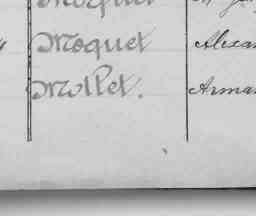 Moquet Alexan
Mollet. Arman